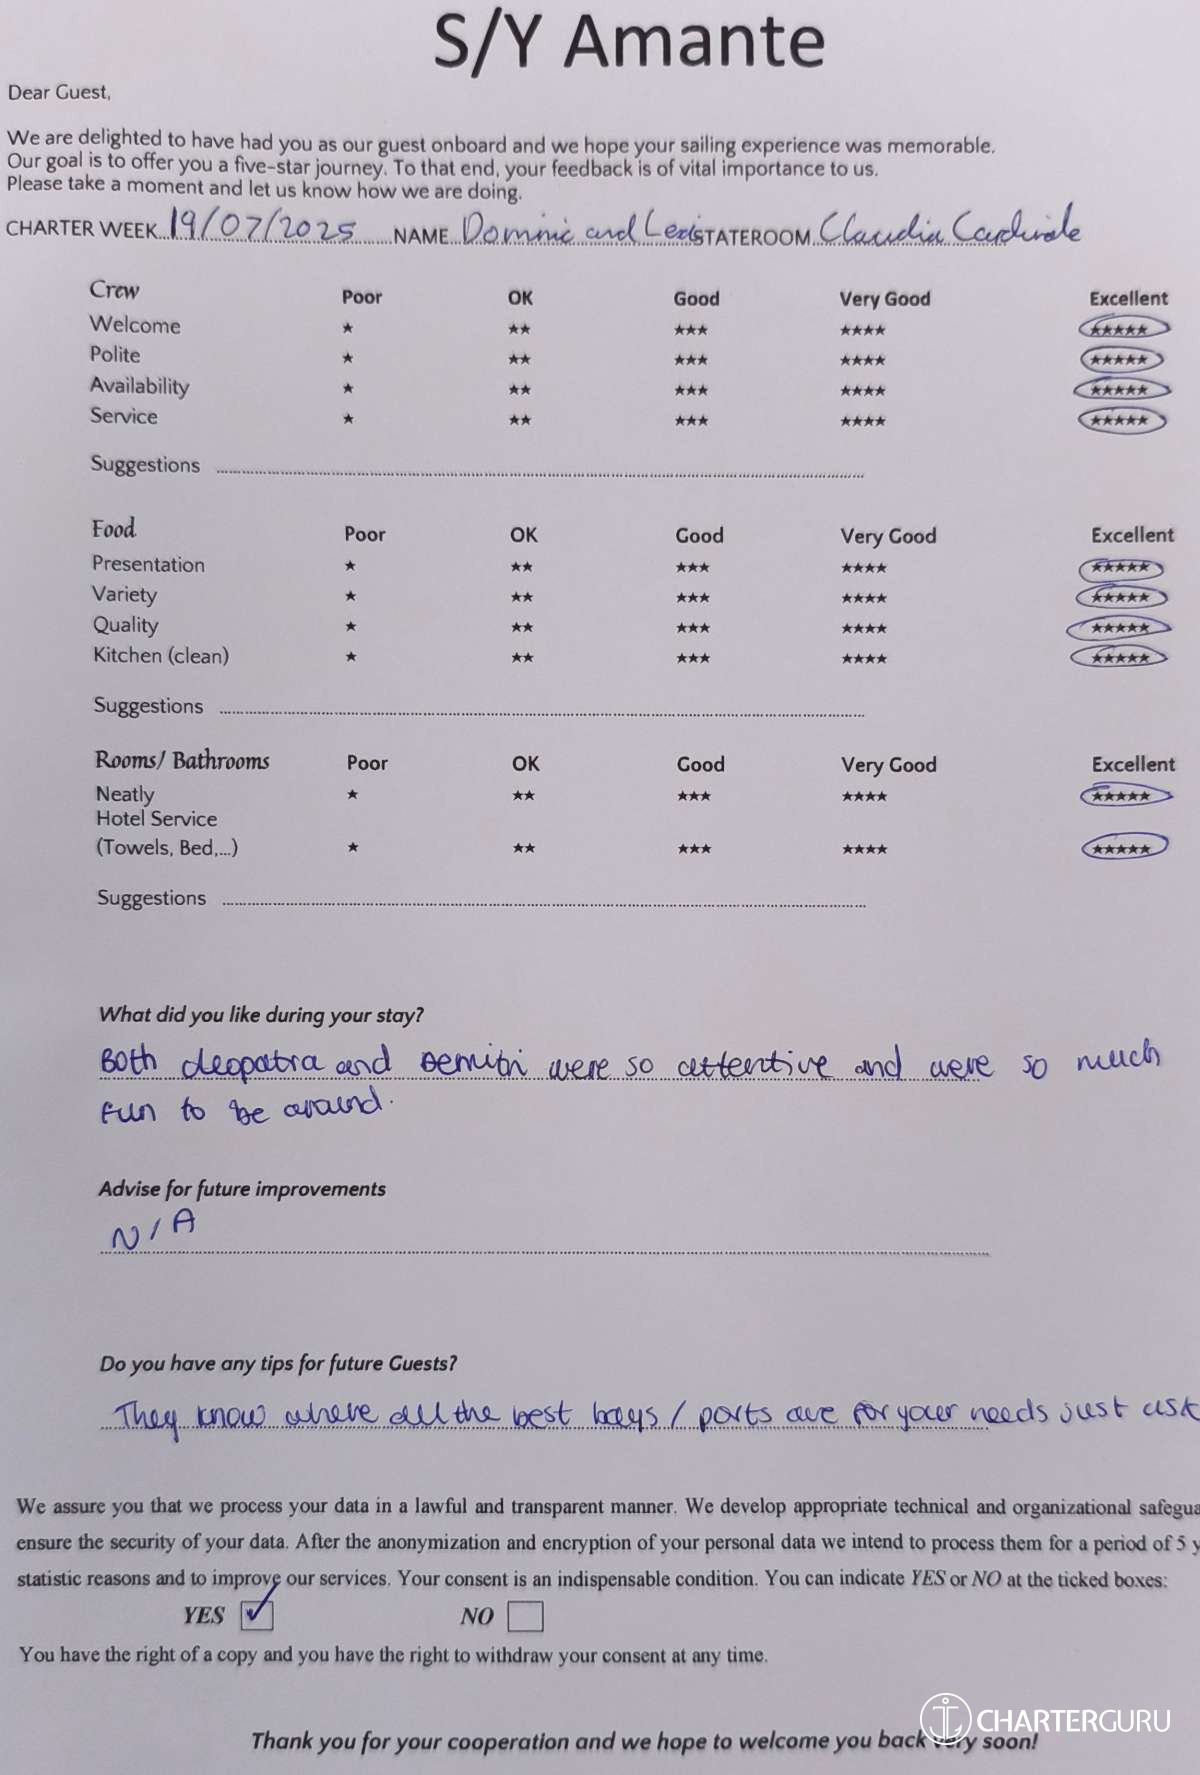 S/Y Amante
Dear Guest,
We are delighted to have had you as our guest onboard and we hope your sailing experience was memorable.
Our goal is to offer you a five-star journey. To that end, your feedback is of vital importance to us.
Please take a moment and let us know how we are doing.
CHARTER WEEK 19/07/2025 NAME Dominic and STATEROOM Claudia Cardinale
Crew Poor OK Good Very Good Excellent
Welcome ★ ★★ ★★★ ★★★★ ★★★★★
Polite ★ ★★ ★★★ ★★★★ ★★★★★
Availability ★ ★★ ★★★ ★★★★ ★★★★★
Service ★ ★★ ★★★ ★★★★ ★★★★★
Suggestions
Food Poor OK Good Very Good Excellent
Presentation ★ ★★ ★★★ ★★★★ ★★★★★
Variety ★ ★★ ★★★ ★★★★ ★★★★★
Quality ★ ★★ ★★★ ★★★★ ★★★★★
Kitchen (clean) ★ ★★ ★★★ ★★★★ ★★★★★
Suggestions
Rooms/ Bathrooms Poor OK Good Very Good Excellent
Neatly ★ ★★ ★★★ ★★★★ ★★★★★
Hotel Service
(Towels, Bed,...) ★ ★★ ★★★ ★★★★ ★★★★★
Suggestions
What did you like during your stay?
Both cleopatra and were so attentive and were so much
fun to be around.
Advise for future improvements
N/A
Do you have any tips for future Guests?
They know where all the best bays / ports are for your needs just ask
We assure you that we process your data in a lawful and transparent manner. We develop appropriate technical and organizational safegua
ensure the security of your data. After the anonymization and encryption of your personal data we intend to process them for a period of 5 y
statistic reasons and to improve our services. Your consent is an indispensable condition. You can indicate YES or NO at the ticked boxes:
YES ✓ NO
You have the right of a copy and you have the right to withdraw your consent at any time.
CHARTERGURU
Thank you for your cooperation and we hope to welcome you back very soon!